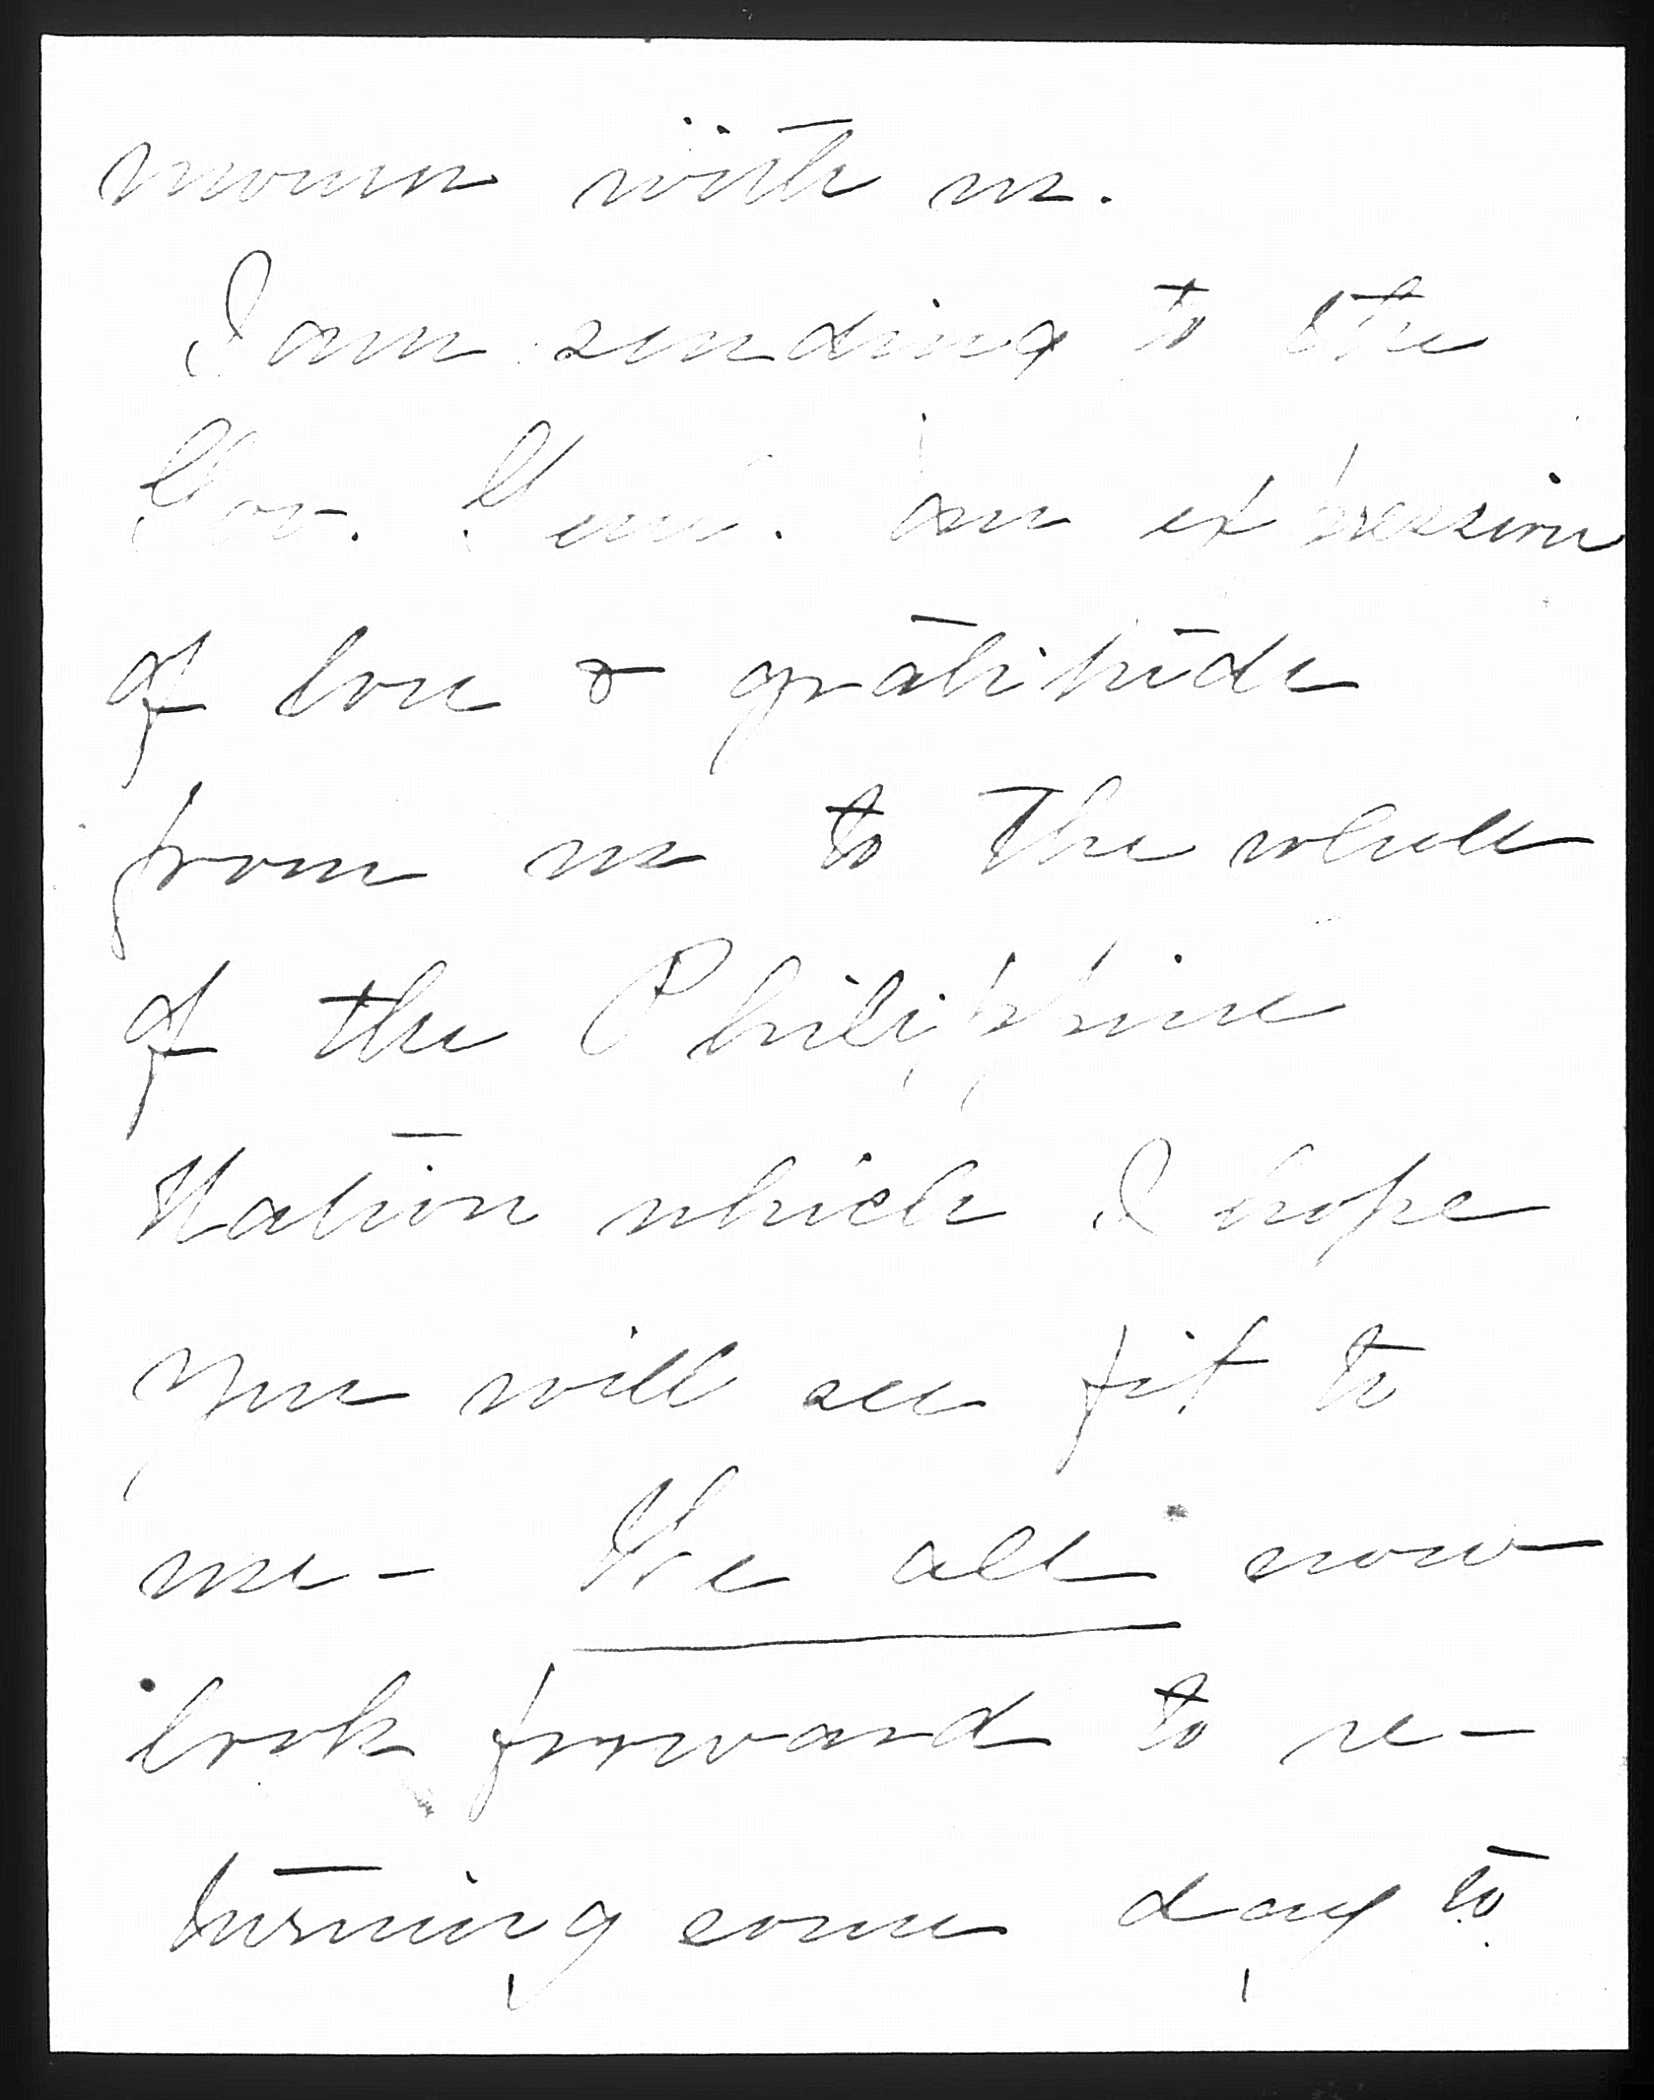 mourn with us.
I am sending to the
Gov. Genl. an expression
of love & gratitude
from us to the whole
of the Philippine
Nation which I hope
you will see fit to
use - We all now
look forward to re-
turning some day to